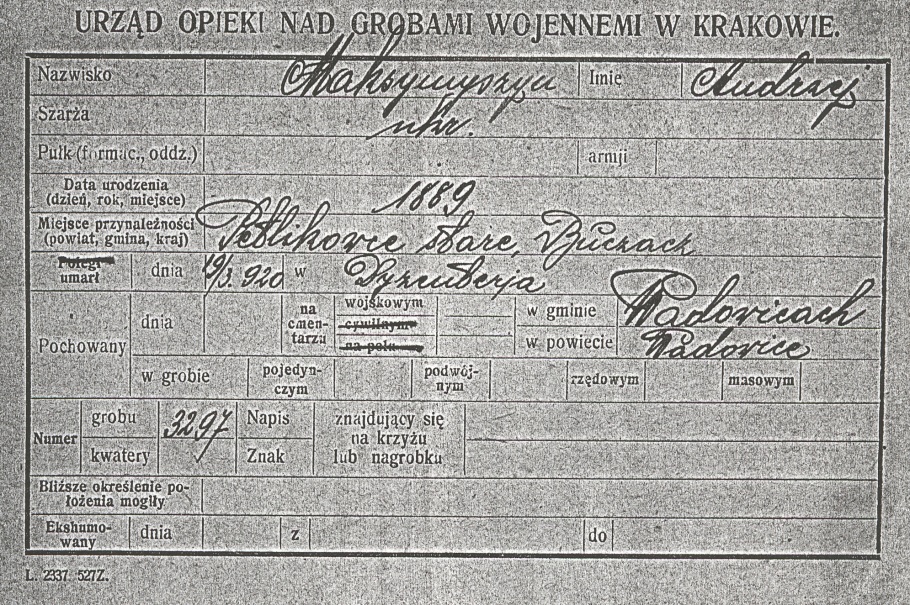 URZĄD OPIEKI NAD GROBAMI WOJENNEMI W KRAKOWIE.
Nazwisko Maksymyszyn Imię Andrzej
Szarża ukr.
Pułk (formac., oddz.) armji
Data urodzenia (dzień, rok, miejsce) 1889
Miejsce przynależności (powiat, gmina, kraj) Petlikowce stare, Buczacz
Poległ umarł dnia 19/3. 920 w Dyzenterja
Pochowany dnia na cmentarzu wojskowym cywilnym na polu w gminie Wadowicach
w powiecie Wadowice
w grobie pojedyn-czym podwój-nym rzędowym masowym
Numer grobu 3297 Napis znajdujący się na krzyżu lub nagrobku
kwatery Znak
Bliższe określenie po-łożenia mogiły
Ekshumo-wany dnia z do
L. 2337 527Z.